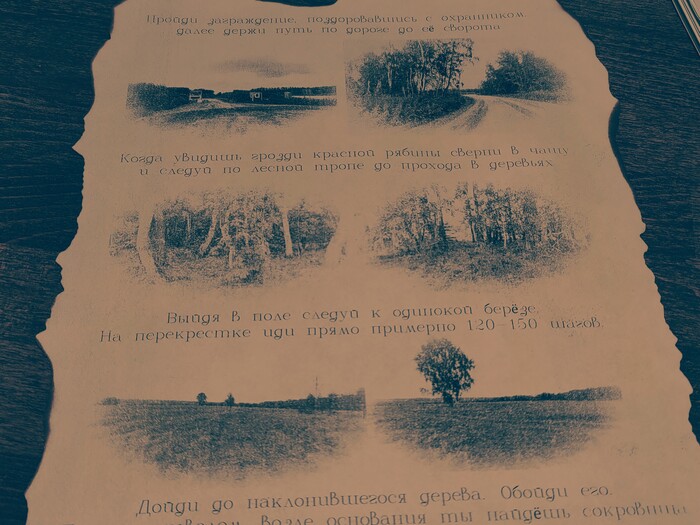 Пройди заграждение, поздоровавшись с охранником
далее держи путь по дороге до её сворота
Когда увидишь грозди красной рябины сверни в чащу
и следуй по лесной тропе до прохода в деревьях
Выйдя в поле следуй к одинокой берёзе.
На перекрестке иди прямо примерно 120-150 шагов.
Дойди до наклонившегося дерева. Обойди его.
возле основания ты найдёшь сокровища